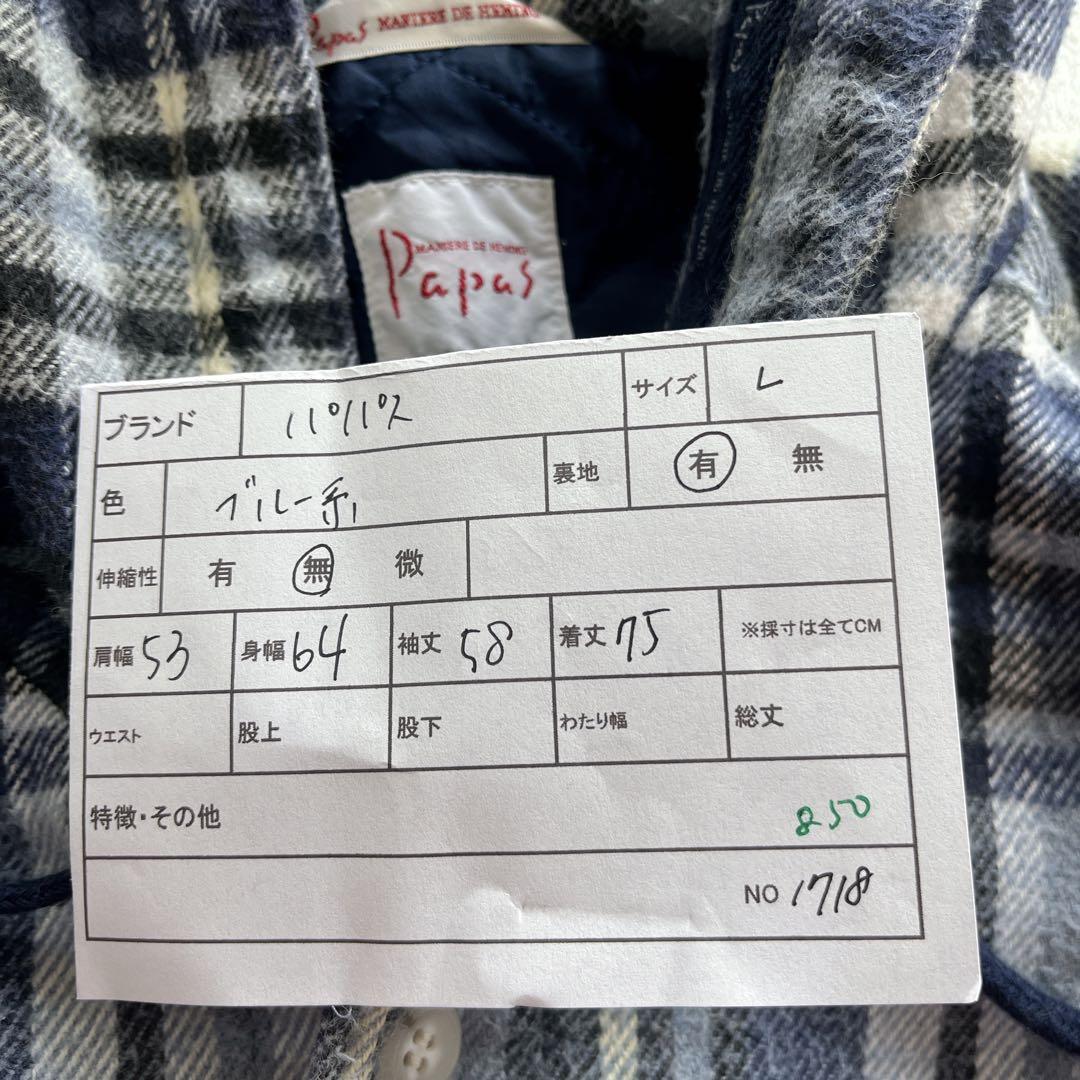 Papas MANIERE DE HEMING
MANIERE DE HEMING
Papas
ブランド パパス サイズ L
色 ブルー系 裏地 有 無
伸縮性 有 無 微
肩幅 53 身幅 64 袖丈 58 着丈 75 ※採寸は全てCM
ウエスト 股上 股下 わたり幅 総丈
特徴・その他 850
NO 1718